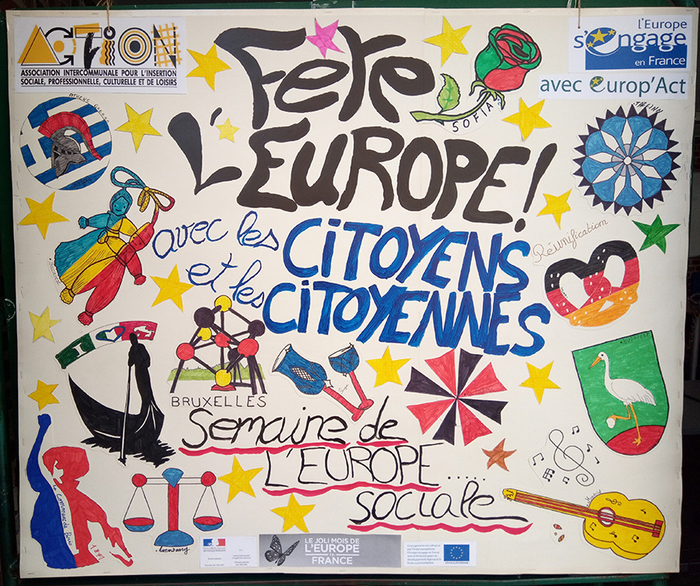 ACTION
ASSOCIATION INTERCOMMUNALE POUR L'INSERTION
SOCIALE, PROFESSIONNELLE, CULTURELLE ET DE LOISIRS
Fête
L'EUROPE!
SOFIA
l'Europe
s'engage
en France
avec europ'Act
avec les CiTOYENS
et les CiTOYENNES
Réunification
BRUXELLES
Semaine de
L'EUROPE.....
sociale
1871
LE JOLI MOIS DE
L'EUROPE
FRANCE